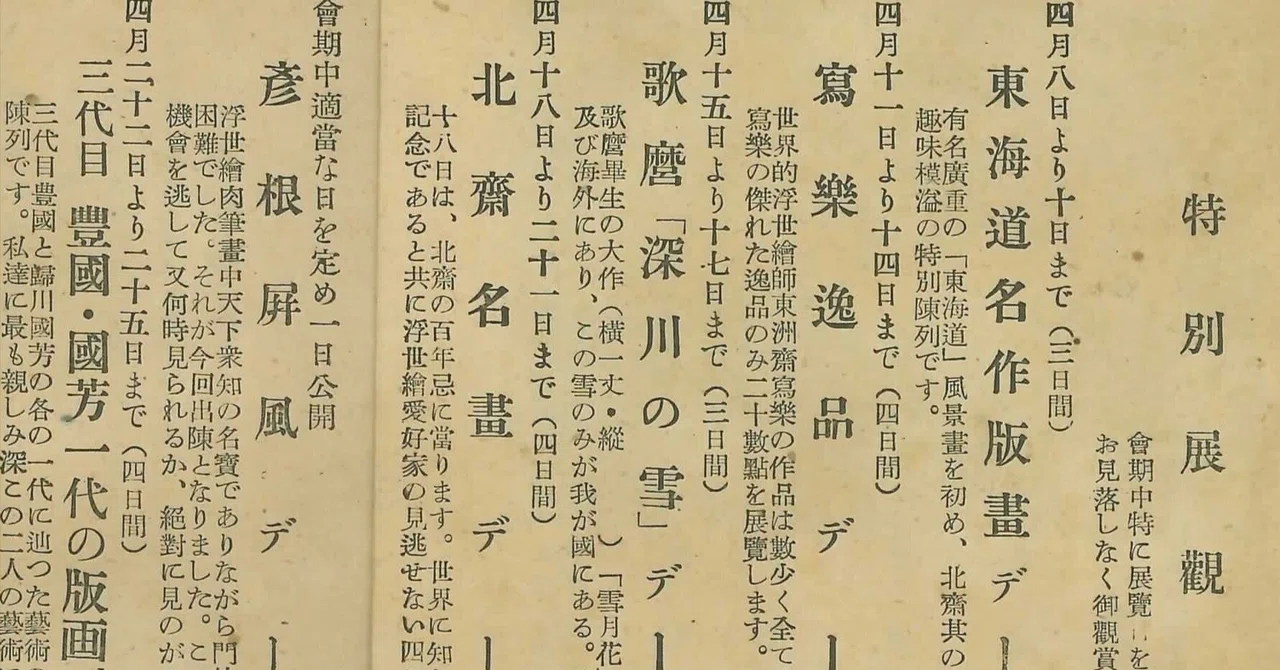 特別展觀
會期中特に展覽
お見落しなく御觀賞
四月八日より十日まで（三日間）
東海道名作版畫デー
有名廣重の「東海道」風景畫を初め、北齋其の
趣味橫溢の特別陳列です。
四月十一日より十四日まで（四日間）
寫樂逸品デー
世界的浮世繪師東洲齋寫樂の作品は數少く全て
寫樂の傑れた逸品のみ二十數點を展覽します。
四月十五日より十七日まで（三日間）
歌麿「深川の雪」デー
歌麿畢生の大作（橫一丈・縱　）「雪月花
及び海外にあり、この雪のみが我が國にある。
四月十八日より二十一日まで（四日間）
北齋名畫デー
十八日は、北齋の百年忌に當ります。世界に知
記念であると共に浮世繪愛好家の見逃せない四
會期中適當な日を定め一日公開
彥根屛風デー
浮世繪肉筆畫中天下衆知の名寶でありながら門
困難でした。それが今回出陳となりました。こ
機會を逃して又何時見られるか、絕對に見のが
四月二十二日より二十五日まで（四日間）
三代目豐國・國芳一代の版画
三代目豐國と歸川國芳の各の一代に辿つた藝術
陳列です。私達に最も親しみ深この二人の藝術